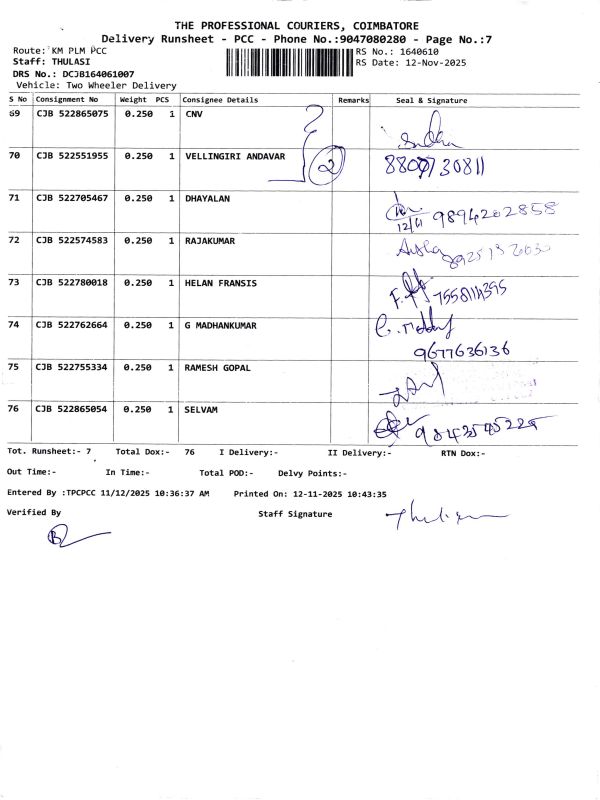 THE PROFESSIONAL COURIERS, COIMBATORE
Delivery Runsheet - PCC - Phone No.:9047080280 - Page No.:7
Route: KM PLM PCC
RS No.: 1640610
Staff: THULASI
RS Date: 12-Nov-2025
DRS No.: DCJB164061007
Vehicle: Two Wheeler Delivery
S No Consignment No Weight PCS Consignee Details Remarks Seal & Signature
69 CJB 522865075 0.250 1 CNV
Sudha
70 CJB 522551955 0.250 1 VELLINGIRI ANDAVAR 2 8807730811
71 CJB 522705467 0.250 1 DHAYALAN
12/11 9894202858
72 CJB 522574583 0.250 1 RAJAKUMAR
73 CJB 522780018 0.250 1 HELAN FRANSIS
74 CJB 522762664 0.250 1 G MADHANKUMAR
9677636136
75 CJB 522755334 0.250 1 RAMESH GOPAL
76 CJB 522865054 0.250 1 SELVAM
Tot. Runsheet:- 7 Total Dox:- 76 I Delivery:- II Delivery:- RTN Dox:-
Out Time:- In Time:- Total POD:- Delvy Points:-
Entered By :TPCPCC 11/12/2025 10:36:37 AM Printed On: 12-11-2025 10:43:35
Verified By Staff Signature